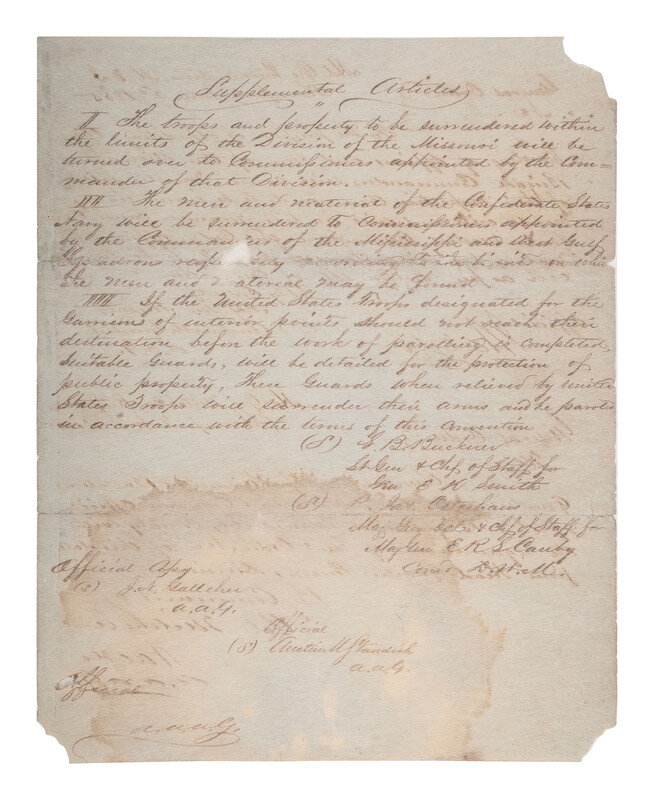 Supplemental Articles
II The troops and property to be surrendered within
the limits of the Division of the Missouri will be
turned over to Commissioners appointed by the Com=
mander of that Division.
III The men and material of the Confederate States
Navy will be surrendered to Commissioners appointed
by the Commanders of the Mississippi and West Gulf
Squadrons respectively according to the limits in which
the men and material may be found
IIII If the United States Troops designated for the
Garrison of interior points should not reach their
destination before the work of parolling is completed,
suitable Guards, will be detailed for the protection of
public property, These Guards when relieved by United
States Troops will surrender their arms and be paroled
in accordance with the terms of this Convention
(S) S. B. Buckner
Lt Gen & Chf of Staff for
Gen E K Smith
(S) P. Jos. Osterhaus
Maj Gen Vols & Chf of Staff for
Maj Gen E R S Canby
Com'g D. W. M.
Official Copy
(S) J. A. Gallcher
A.A.G.
Official
(S) Austin M Standish
A.A.G.
Official
A.A.A.G.